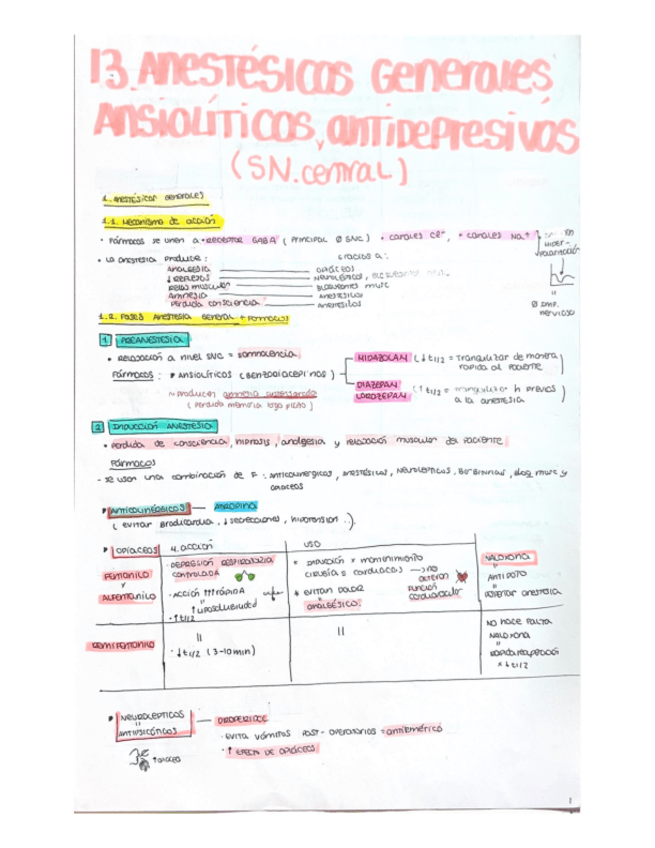 13. Anestésicos Generales,
Ansiolíticos, antidepresivos
(SN. central)
1. Anestésicos Generales
1.1. Mecanismo de acción
· Fármacos se unen a + RECEPTOR GABA (PRINCIPAL Ø SNC) + canales Cl-, + canales Na+
HIPER-
· La anestesia produce: Gracias a:
ANALGESIA OPIÁCEOS
↓ REFLEJOS NEUROLÉPTICOS,
Relaj muscular Bloqueantes musc
Amnesia ANESTÉSICOS
Pérdida consciencia ANESTÉSICOS
Ø IMP.
nervioso
1.2. Fases Anestesia General + Fármacos
1 PREANESTESIA
· RELAJACIÓN A nivel SNC = somnolencia
Fármacos: * ANSIOLÍTICOS (BENZODIACEPINAS)
MIDAZOLAN (↓t1/2 = Tranquilizar de manera
rápida al paciente)
DIAZEPAN
LORAZEPAN
(↑t1/2 = tranquilizar h previas
a la anestesia)
~ Producen amnesia
(Pérdida memoria largo plazo)
2 Inducción ANESTESIA
· Pérdida de consciencia, hipnosis, analgesia y relajación muscular del paciente
Fármacos
- se usan una combinación de F: Anticolinérgicos, anestésicos, Neurolépticos, bloq musc y
opiáceos
* ANTICOLINÉRGICOS — ATROPINA
(Evitar Bradicardia, ↓secreciones, hipotensión..)
* OPIÁCEOS
M. acción
USO
FENTANILO
Y
ALFENTANILO
· DEPRESIÓN RESPIRATORIA
CONTROLADA
· ACCIÓN ↑↑↑RÁPIDA
"
↑ liposolubilidad
· ↑t1/2
* INDUCCIÓN Y mantenimiento
cirugías cardiacas → no
alteran
función
cardiovascular
* EVITAN DOLOR
"
ANALGÉSICO
NALOXONA
"
ANTÍDOTO
"
despertar anestesia
REMIFENTANILO
"
· ↓t1/2 (3-10min)
"
NO HACE FALTA
NALOXONA
"
RÁPIDA recuperación
x ↓t1/2
* NEUROLÉPTICOS
"
ANTIPSICÓTICOS
— DROPERIDOL
· EVITA VÓMITOS POST-OPERATORIOS = antiemético
· ↑ EFECTO DE OPIÁCEOS
1